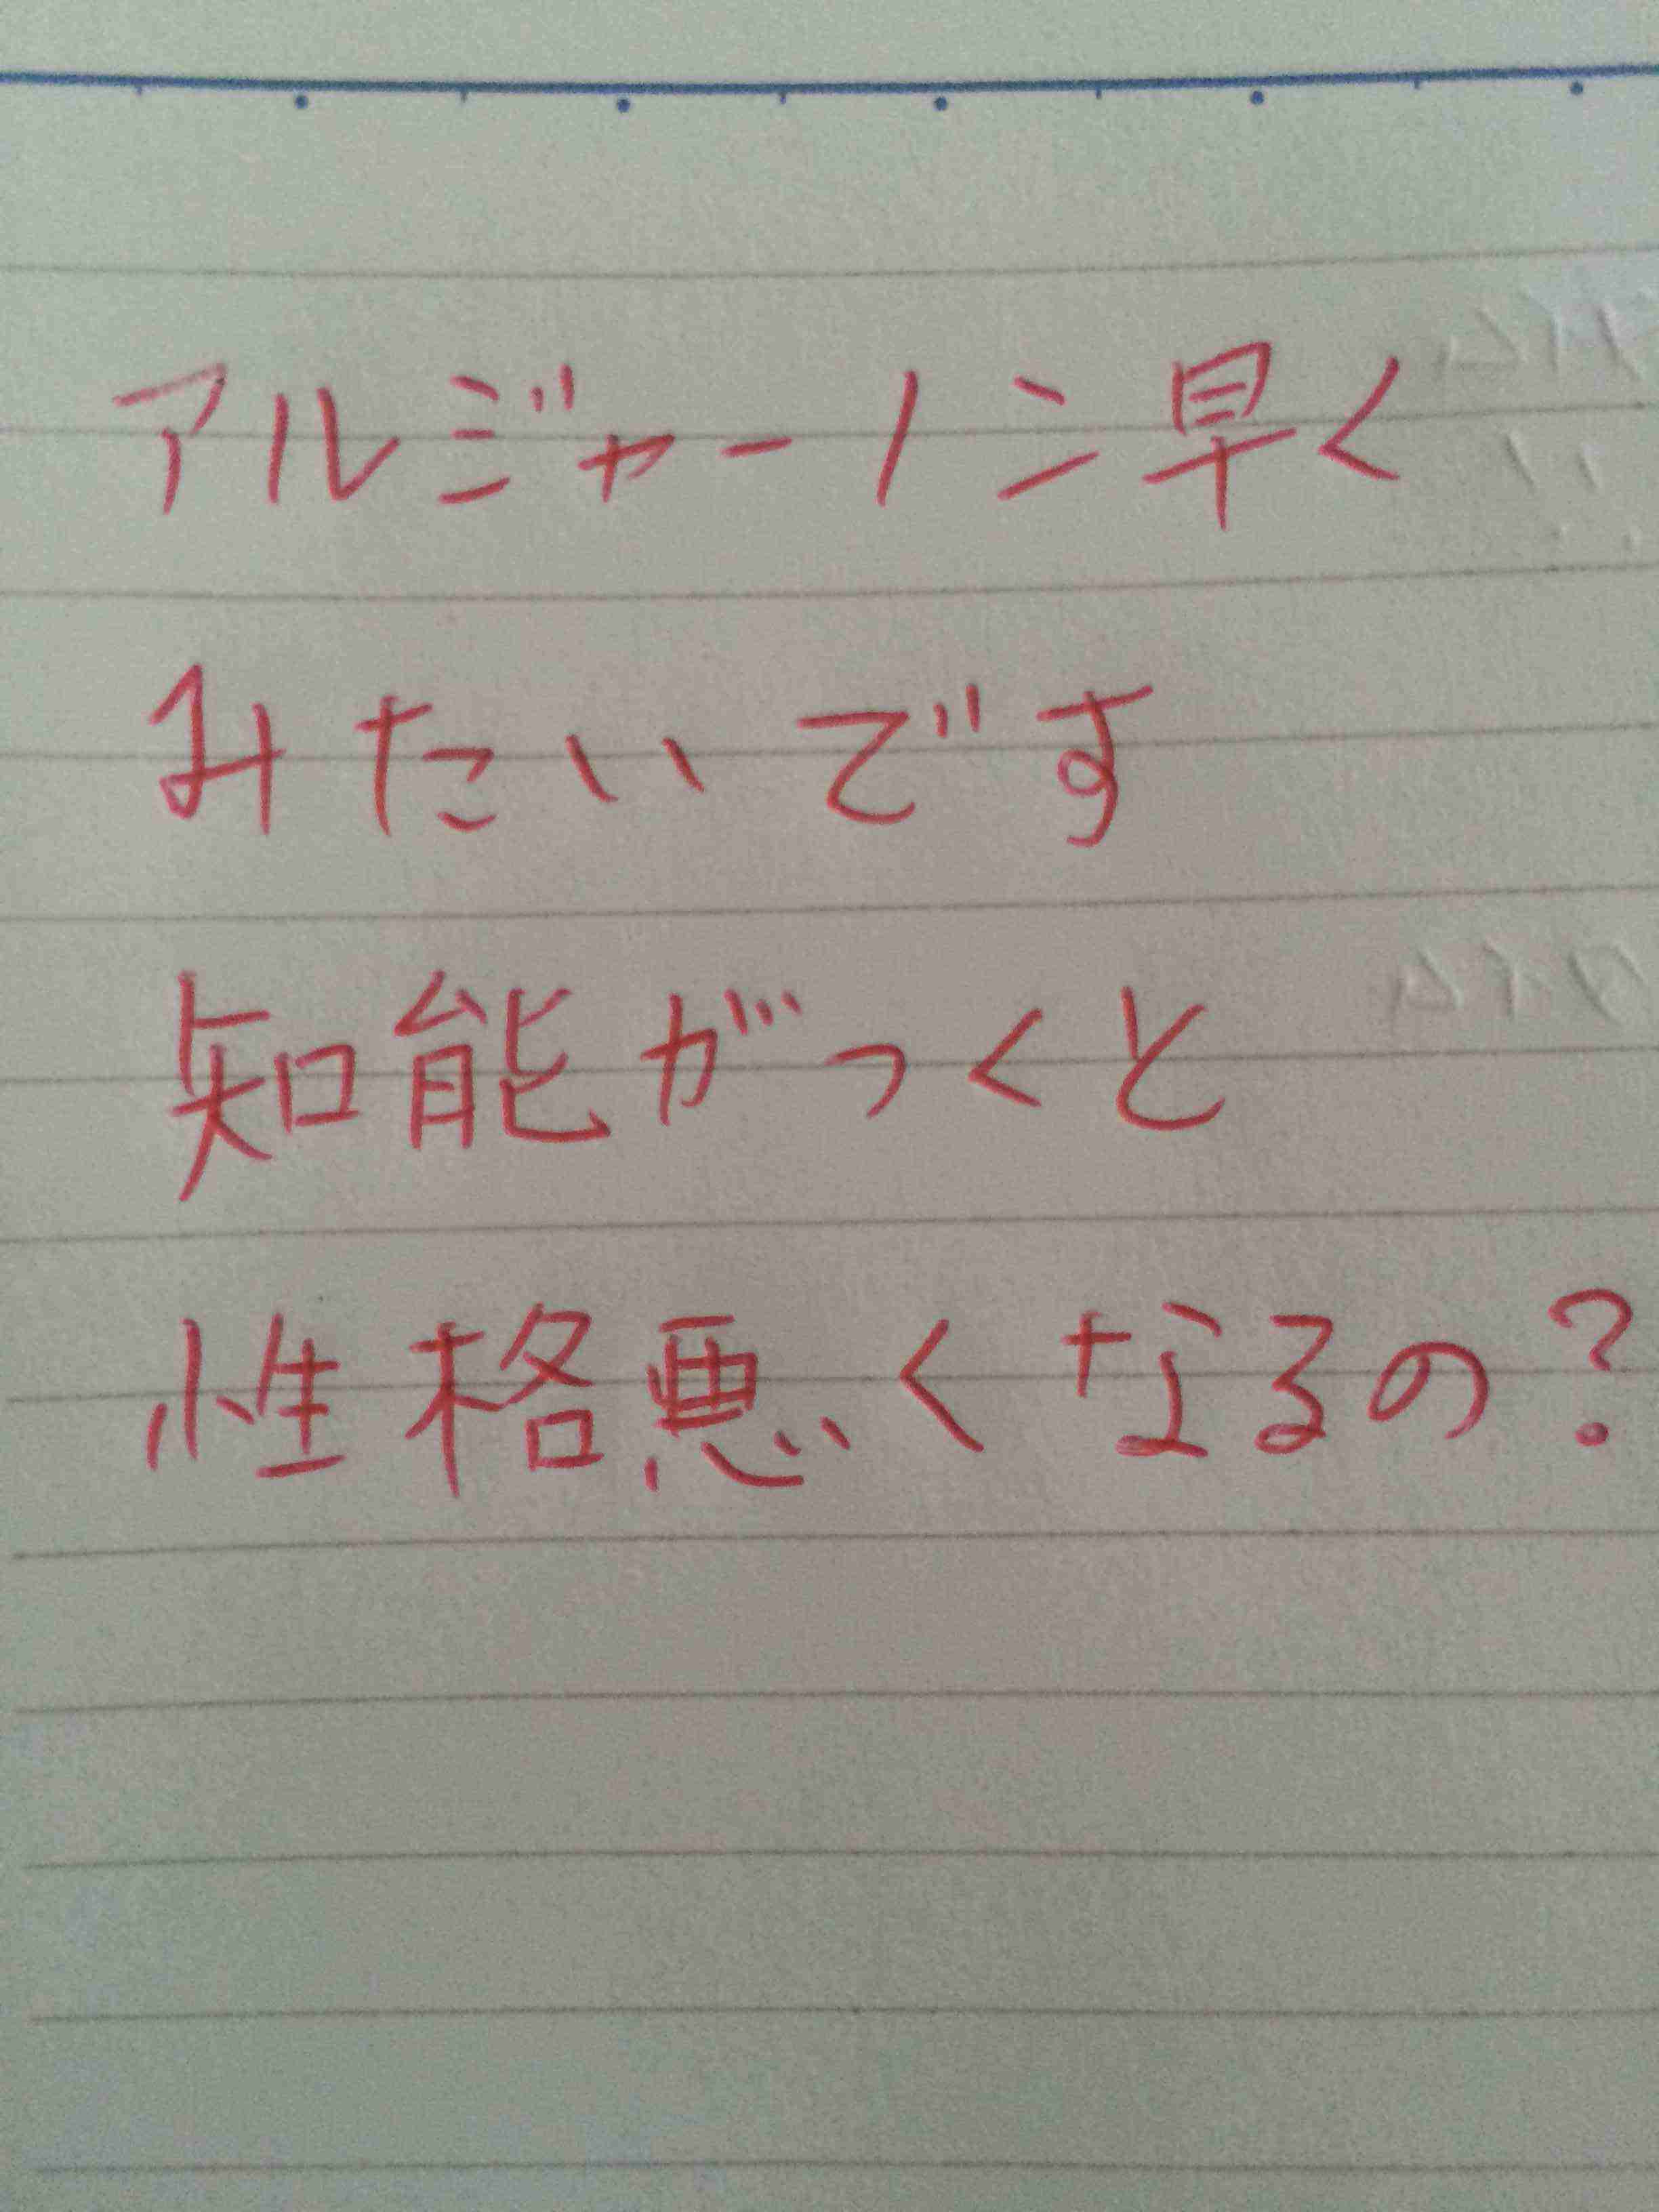 アルジャーノン早く
みたいです
知能がつくと
性格悪くなるの?